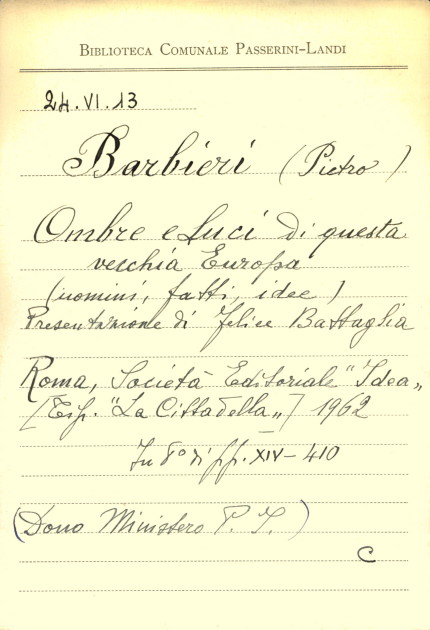 BIBLIOTECA COMUNALE PASSERINI-LANDI
24.VI.13
Barbieri (Pietro)
Ombre e Luci di questa
vecchia Europa
(uomini, fatti, idee)
Presentazione di Felice Battaglia
Roma, Società Editoriale "Idea„
[Tip. "La Cittadella„] 1962
In 8° di pp. XIV-410
(Dono Ministero P. I.)
C